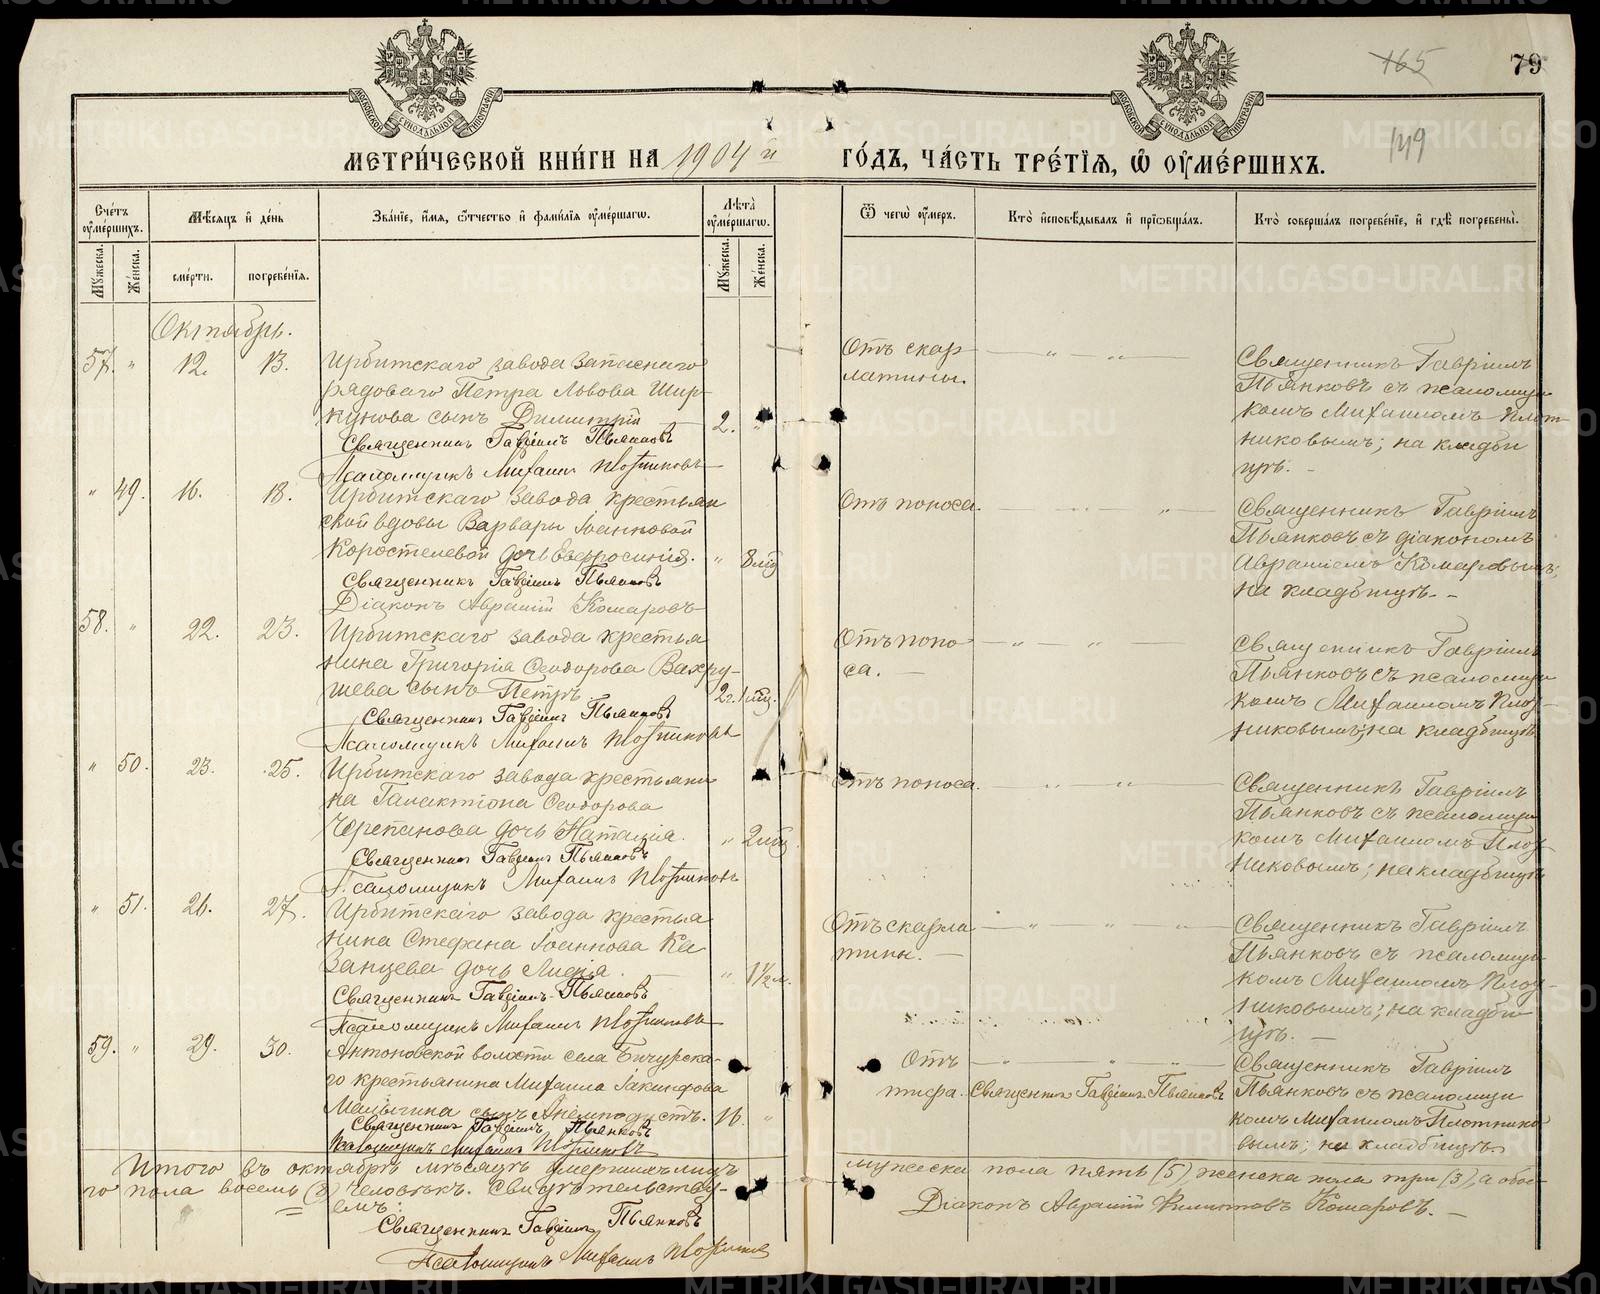 165
79
149
МЕТРИ́ЧЕСКОЙ КНИ́ГИ НА 1904 й ГО́ДЪ, ЧА́СТЬ ТРЕ́ТІѦ, Ѡ҆ ОУ҆МЕ́РШИХЪ.
Сче́тъ оу҆ме́ршихъ.
Мѣ́сяцъ и҆ де́нь
Зва́нїе, и҆́мя, ѻ҆́тчество и҆ фами́лїя оу҆ме́ршагѡ.
Лѣ́та оу҆ме́ршагѡ.
Ѿ чегѡ̀ оу҆́меръ.
Кто̀ и҆сповѣ́дывалъ и҆ прїѡбща́лъ.
Кто̀ соверша́лъ погребе́нїе, и҆ гдѣ̀ погребены̀.
Мꙋ́жеска.
Же́нска.
сме́рти.
погребе́нїя.
Мꙋ́жеска.
Же́нска.
Октябрь.
57. " 12. 13.
Ирбитскаго завода запаснаго
рядоваго Петра Львова Шир-
кунова сынъ Димитрій
2. "
Священникъ Гавріилъ Пьянковъ
Псаломщикъ Михаилъ Плотниковъ
Отъ скар
латины.
Священникъ Гавріилъ
Пьянковъ съ псаломщи
комъ Михаиломъ Плот
никовымъ; на кладби
щѣ.
" 49. 16. 18.
Ирбитскаго завода крестьян
ской вдовы Варвары Іоанновой
Коростелевой дочь Евфросинія.
" 8 мц
Священникъ Гавріилъ Пьянковъ
Діаконъ Аврамій Комаровъ
Отъ поноса.
Священникъ Гавріилъ
Пьянковъ съ діакономъ
Авраміемъ Комаровымъ;
на кладбищѣ.
58. " 22. 23.
Ирбитскаго завода крестья
нина Григорія Ѳеодорова Вахру-
шева сынъ Петръ.
2 г. 1 мц.
Священникъ Гавріилъ Пьянковъ
Псаломщикъ Михаилъ Плотниковъ
Отъ поно
са.
Священникъ Гавріилъ
Пьянковъ съ псаломщи
комъ Михаиломъ Плот-
никовымъ; на кладбищѣ
" 50. 23. 25.
Ирбитскаго завода крестьяни
на Галактіона Ѳеодорова
Черепанова дочь Наталія.
" 2 мц
Священникъ Гавріилъ Пьянковъ
Псаломщикъ Михаилъ Плотниковъ
Отъ поноса.
Священникъ Гавріилъ
Пьянковъ съ псаломщи
комъ Михаиломъ Плот-
никовымъ; на кладбищѣ
" 51. 26. 27.
Ирбитскаго завода крестья
нина Стефана Іоаннова Ка
занцева дочь Лидія.
" 1 ½ м.
Священникъ Гавріилъ Пьянковъ
Псаломщикъ Михаилъ Плотниковъ
Отъ скарла
тины.
Священникъ Гавріилъ
Пьянковъ съ псаломщи
комъ Михаиломъ Плот-
никовымъ; на кладби
щѣ.
59. " 29. 30.
Антоновской волости села Бичурска-
го крестьянина Михаила Іакинфова
Малыгина сынъ Анемподистъ.
16. "
Священникъ Гавріилъ Пьянковъ
Псаломщикъ Михаилъ Плотниковъ
Отъ
тифа.
Священникъ Гавріилъ Пьянковъ
Священникъ Гавріилъ
Пьянковъ съ псаломщи
комъ Михаиломъ Плотнико
вымъ; на кладбищѣ.
Итого въ октябрѣ мѣсяцѣ умершихъ лицъ мужеска пола пять (5), женска пола три (3), а обое-
го пола восемь (8) человѣкъ. Свидѣтельству-
емъ:
Священникъ Гавріилъ Пьянковъ
Діаконъ Аврамій Филиповъ Комаровъ.
Псаломщикъ Михаилъ Плотников